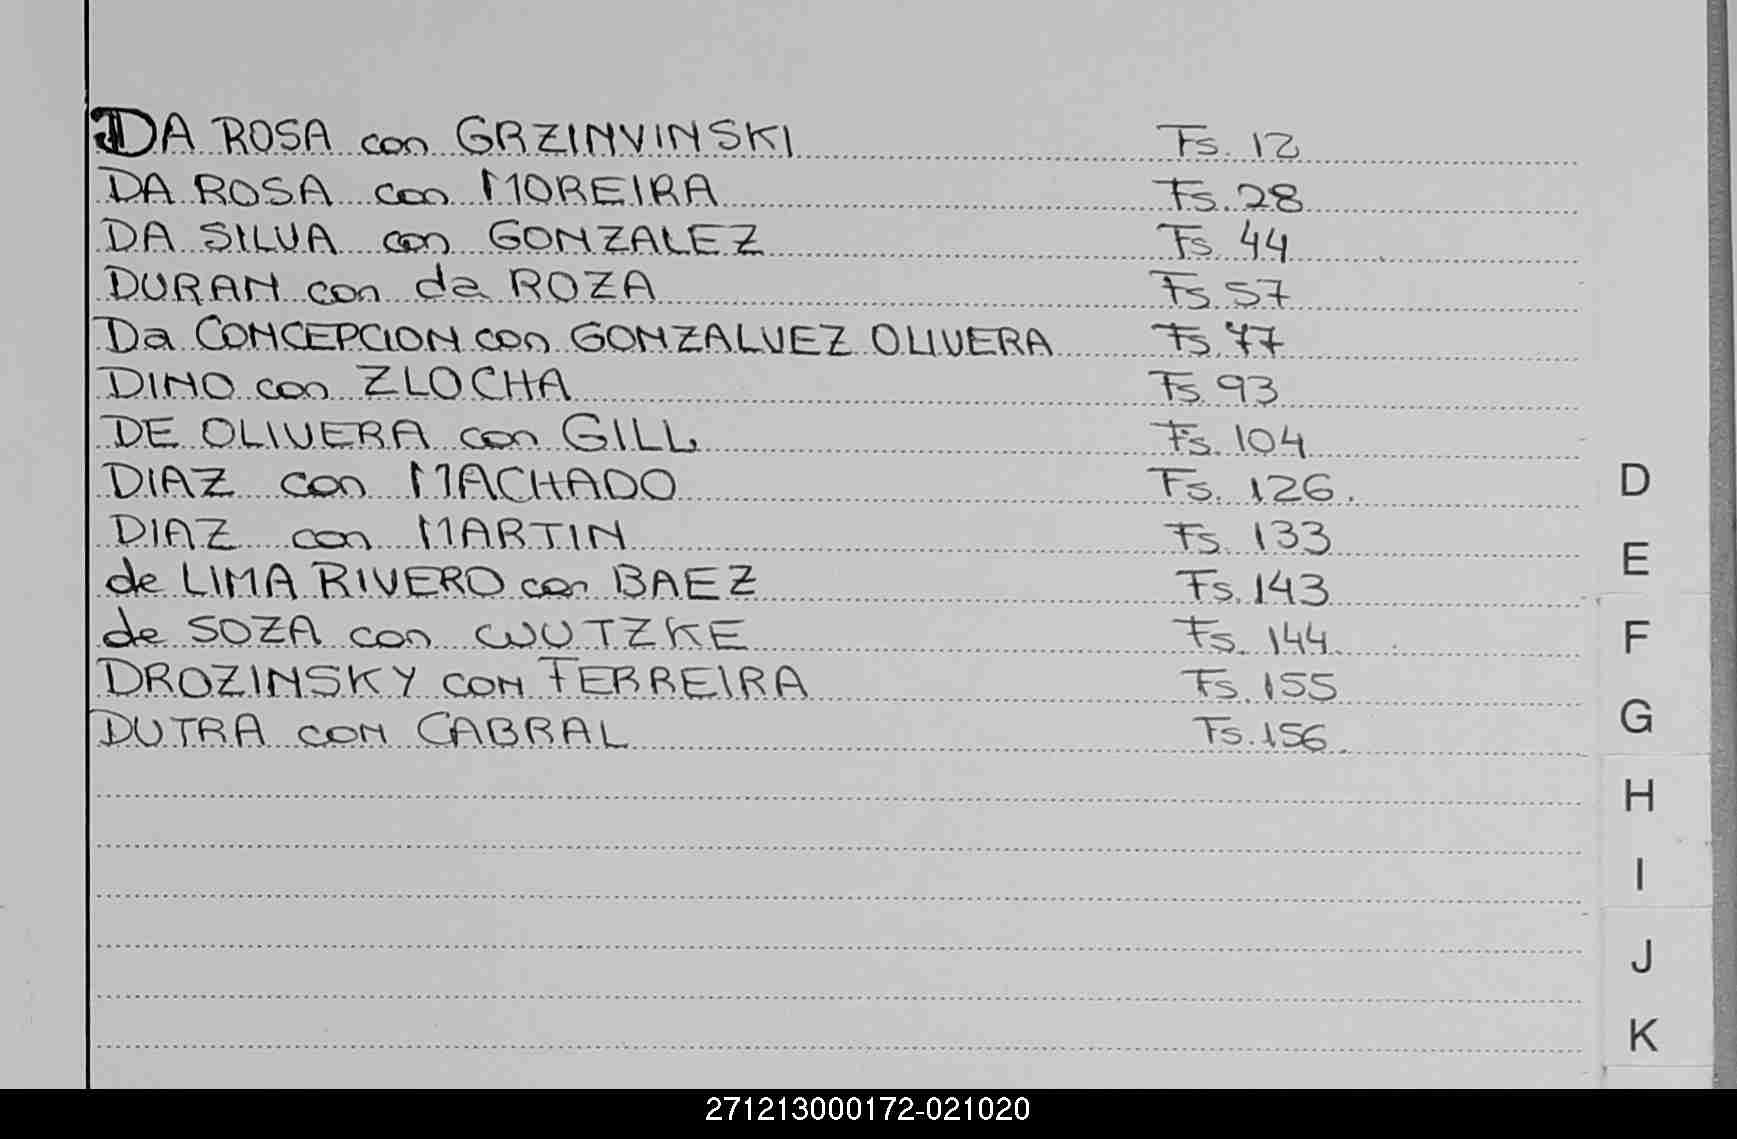 DA ROSA con GRZINVINSKI Fs. 12
DA ROSA con MOREIRA Fs. 28
DA SILVA con GONZALEZ Fs. 44
DURAN con da ROZA Fs. 57
Da CONCEPCION con GONZALVEZ OLIVERA Fs. 77
DINO con ZLOCHA Fs. 93
DE OLIVERA con GILL Fs. 104
DIAZ con MACHADO Fs. 126.
DIAZ con MARTIN Fs. 133
de LIMA RIVERO con BAEZ Fs. 143
de SOZA con WUTZKE Fs. 144
DROZINSKY con FERREIRA Fs. 155
DUTRA con CABRAL Fs. 156.
D
E
F
G
H
I
J
K
271213000172-021020